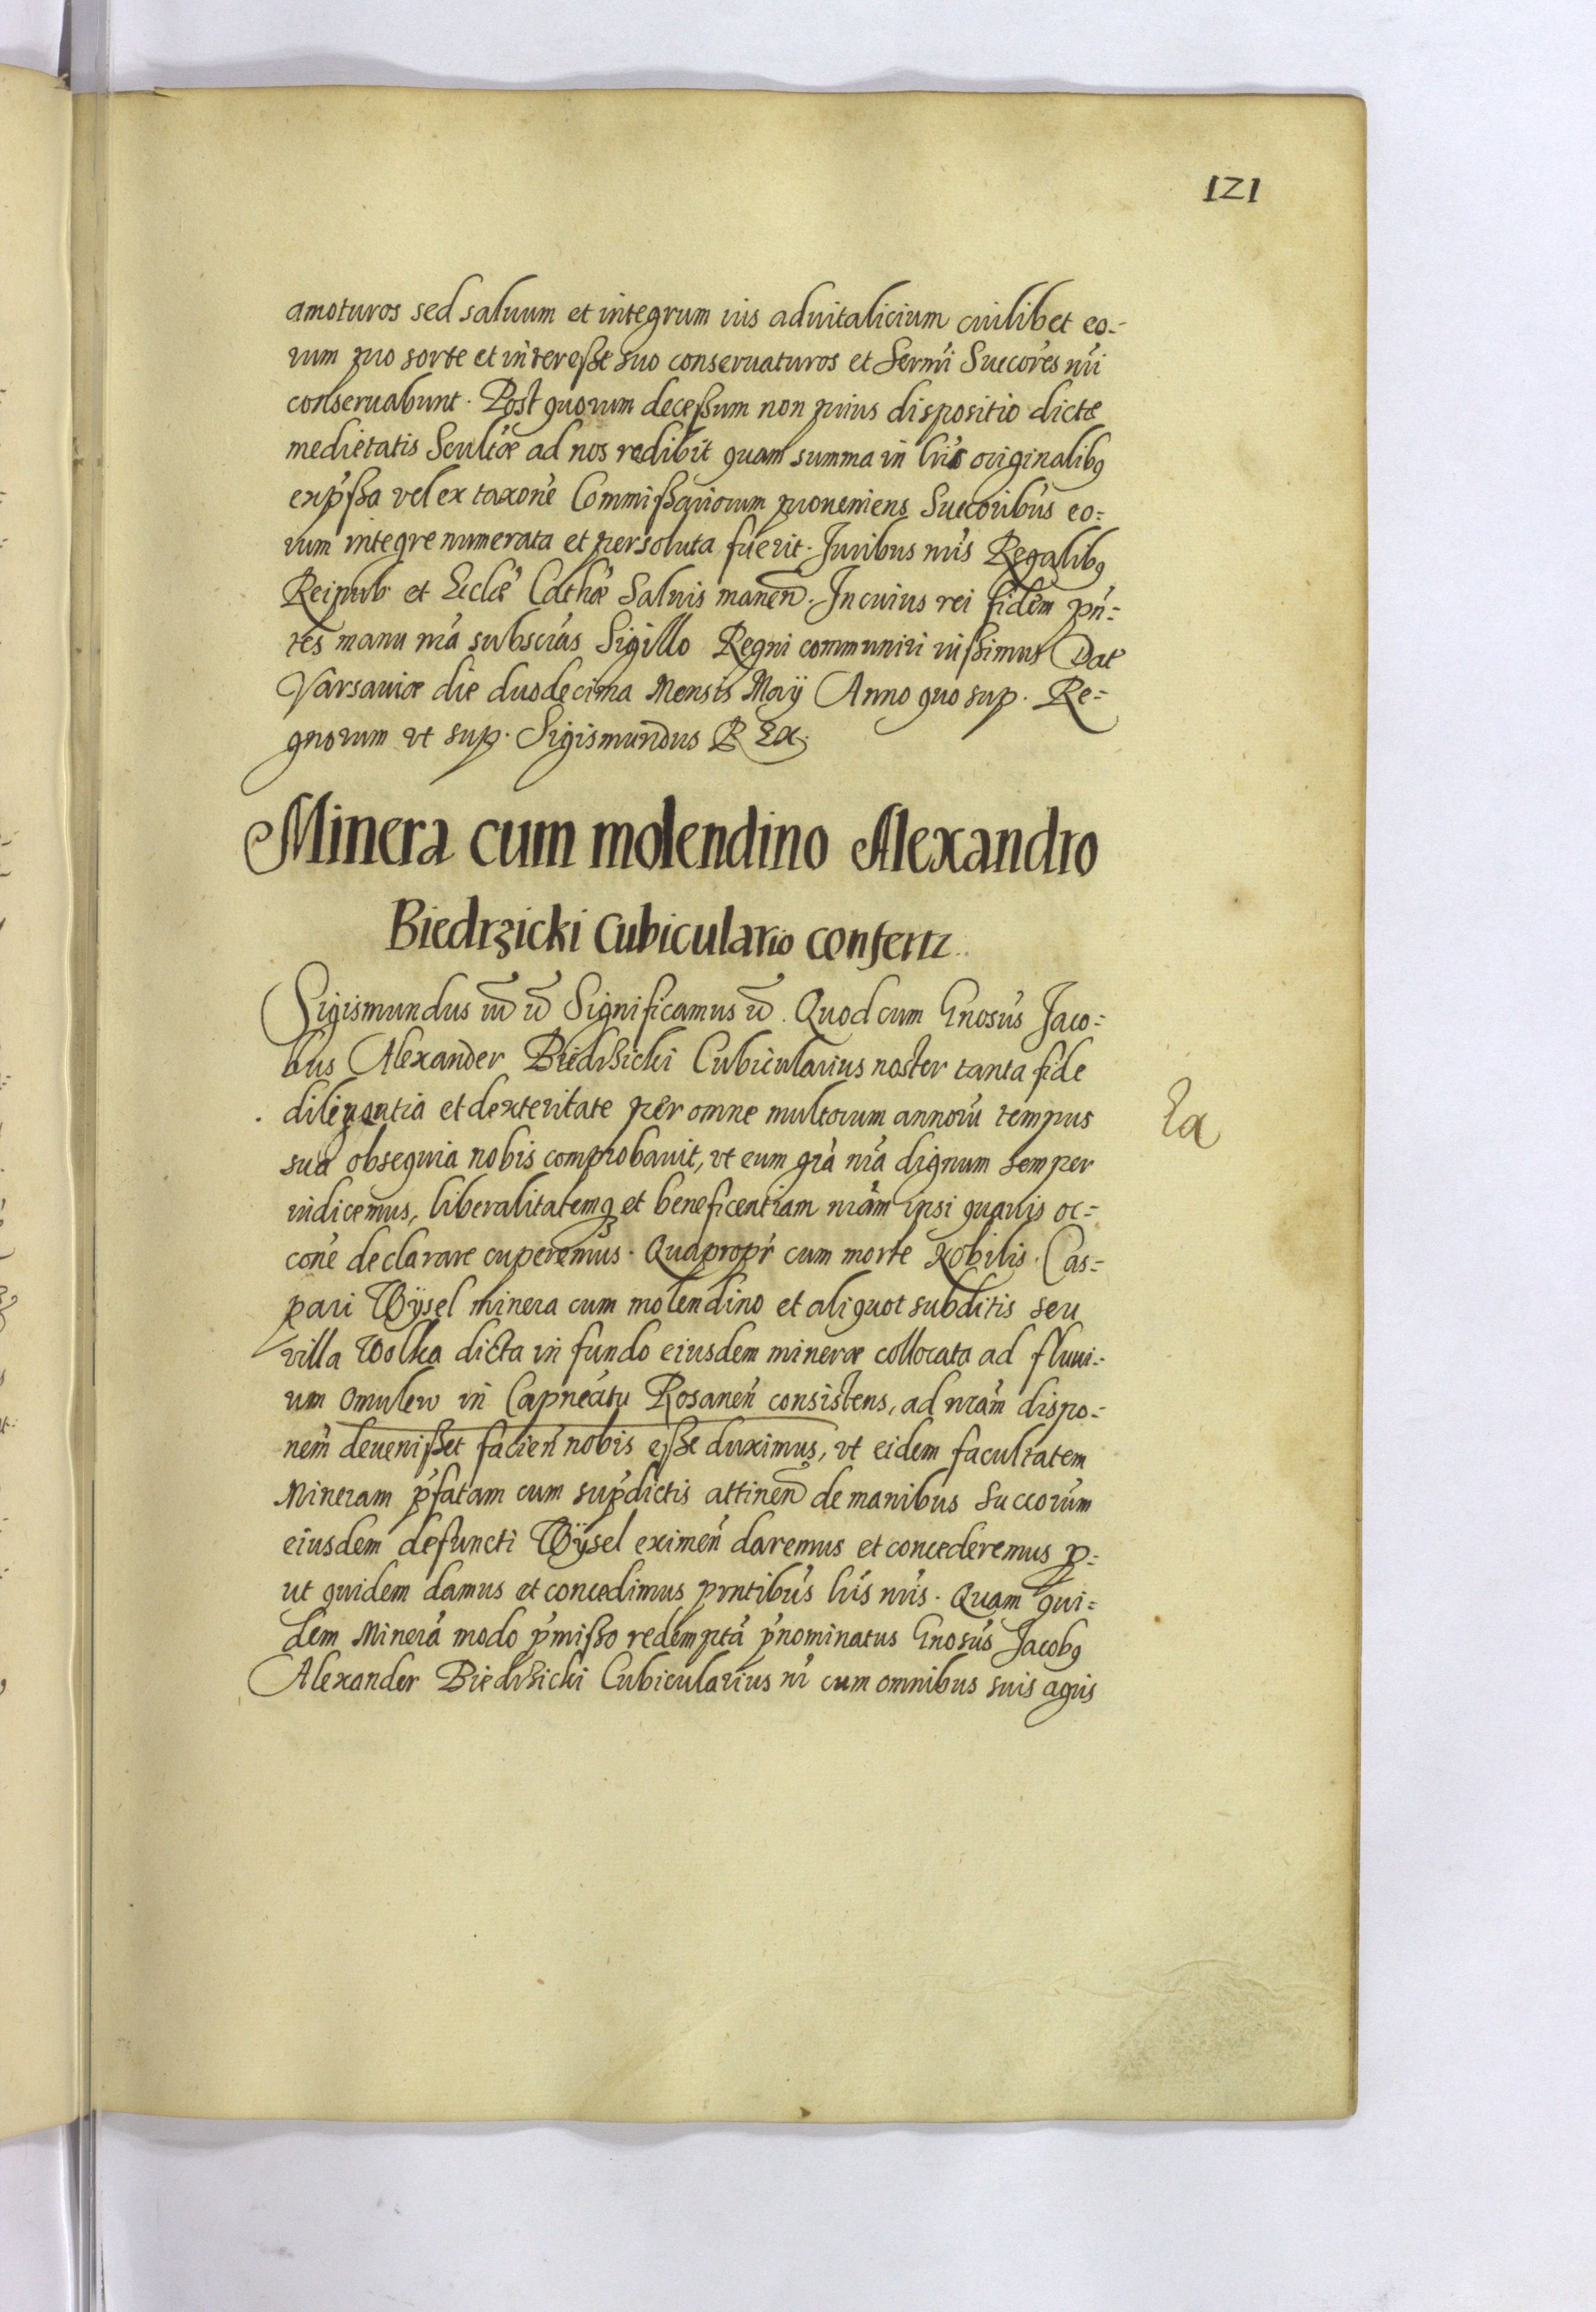 121
amoturos sed saluum et integrum ius aduitalicium cuilibet eo-
rum pro sorte et interesse suo conseruaturos et Sermi Succores nri
conseruabunt. Post quorum decessum non prius dispositio dictæ
medietatis Scultæ ad nos redibit quam summa in lris originalibq
exp'ssa vel ex taxone Commissariorum proueniens Succoribus eo-
rum integre numerata et persoluta fuerit. Juribus nris Regalibq
Reipub. et Ecclæ Cathæ Saluis manen. In cuius rei fidem pn-
tes manu nra subscras Sigillo Regni communiri iussimus Dat
Varsauiæ die duodecima Mensis Maÿ Anno quo sup. Re-
gnorum vt sup. Sigismundus REx.
Minera cum molendino Alexandro
Biedrzicki Cubiculario confertr.
Sigismundus Significamus Quod cum Gnosus Jaco-
bus Alexander Biedrzicki Cubicularius noster tanta fide
diligentia et dexteritate per omne multorum annoru tempus
Ex
sua obsequia nobis comprobauit, vt eum gra nra dignum semper
iudicemus, liberalitatemq et beneficentiam nram ipsi quauis oc-
cone declarare cuperemus. Quapropr cum morte Nobilis Cas-
pari Wÿsel minera cum molendino et aliquot subditis seu
villa Wolka dicta in fundo eiusdem mineræ collocata ad fluui-
um Omulew in Capneatu Rosanen consistens, ad nram dispo-
nem deuenisset facien nobis esse duximus, vt eidem facultatem
Mineram p'fatam cum sup'dictis attinen de manibus Succorum
eiusdem defuncti Wÿsel eximen daremus et concederemus p-
ut quidem damus et concedimus pntibus lris nris. Quam qui-
dem Minera modo p'misso redempta p'nominatus Gnosus Jacobq
Alexander Biedrzicki Cubicularius nr cum omnibus suis agris